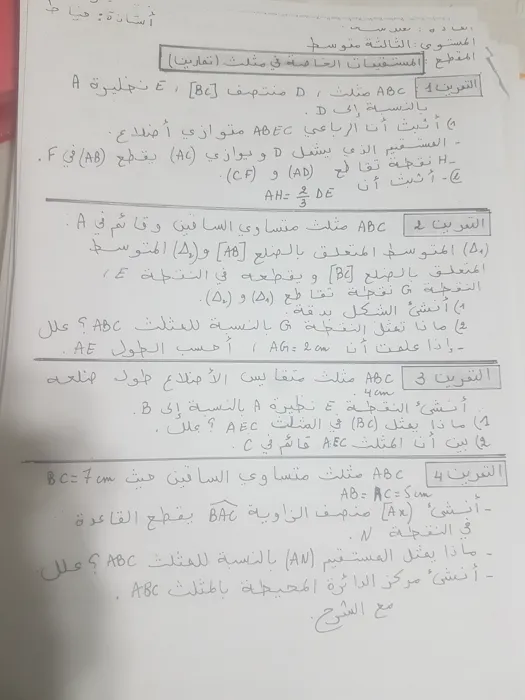 أستاذة: خياط
المستوى: الثالثة متوسط
المقطع: المستقيمات الخاصة في مثلث (تمارين)
التمرين 1 ABC مثلث، D منتصف [BC]، E نظيرة A
بالنسبة إلى D.
1) أثبت أن الرباعي ABEC متوازي أضلاع.
- المستقيم الذي يشمل D ويوازي (AC) يقطع (AB) في F.
- H نقطة تقاطع (AD) و (CF).
2) - أثبت أن AH = 2/3 DE
التمرين 2 ABC مثلث متساوي الساقين وقائم في A.
(Δ₁) المتوسط المتعلق بالضلع [AB] و (Δ₂) المتوسط
المتعلق بالضلع [BC] ويقطعه في النقطة E،
النقطة G نقطة تقاطع (Δ₁) و (Δ₂).
1) أنشئ الشكل بدقة.
2) ماذا تمثل النقطة G بالنسبة للمثلث ABC؟ علل
- إذا علمت أن AG = 2cm، أحسب الطول AE.
التمرين 3 ABC مثلث متقايس الأضلاع طول ضلعه
4cm.
أنشئ النقطة E نظيرة A بالنسبة إلى B.
1) ماذا يمثل (BC) في المثلث AEC؟ علل.
2) بين أن المثلث AEC قائم في C.
التمرين 4 ABC مثلث متساوي الساقين حيث BC = 7cm
AB = AC = 5cm
- أنشئ [Ax) منصف الزاوية BAC يقطع القاعدة
في النقطة N.
- ماذا يمثل المستقيم (AN) بالنسبة للمثلث ABC؟ علل
- أنشئ مركز الدائرة المحيطة بالمثلث ABC.
مع الشرح.